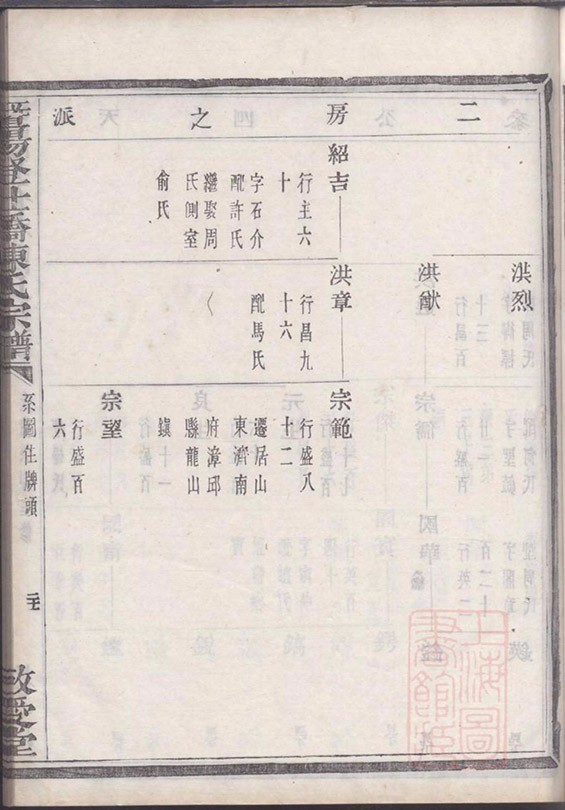 二房之派
洪烈
洪猷
紹吉
行主六
十
字石介
配許氏
繼娶周
氏側室
俞氏
洪章
行昌九
十六
配馬氏
宗範
行盛八
十二
遷居山
東濟南
府漳邱
縣龍山
鎮
宗望
行盛百
六
陳氏宗譜
系圖住牌頭
敬愛堂
上海圖書館藏